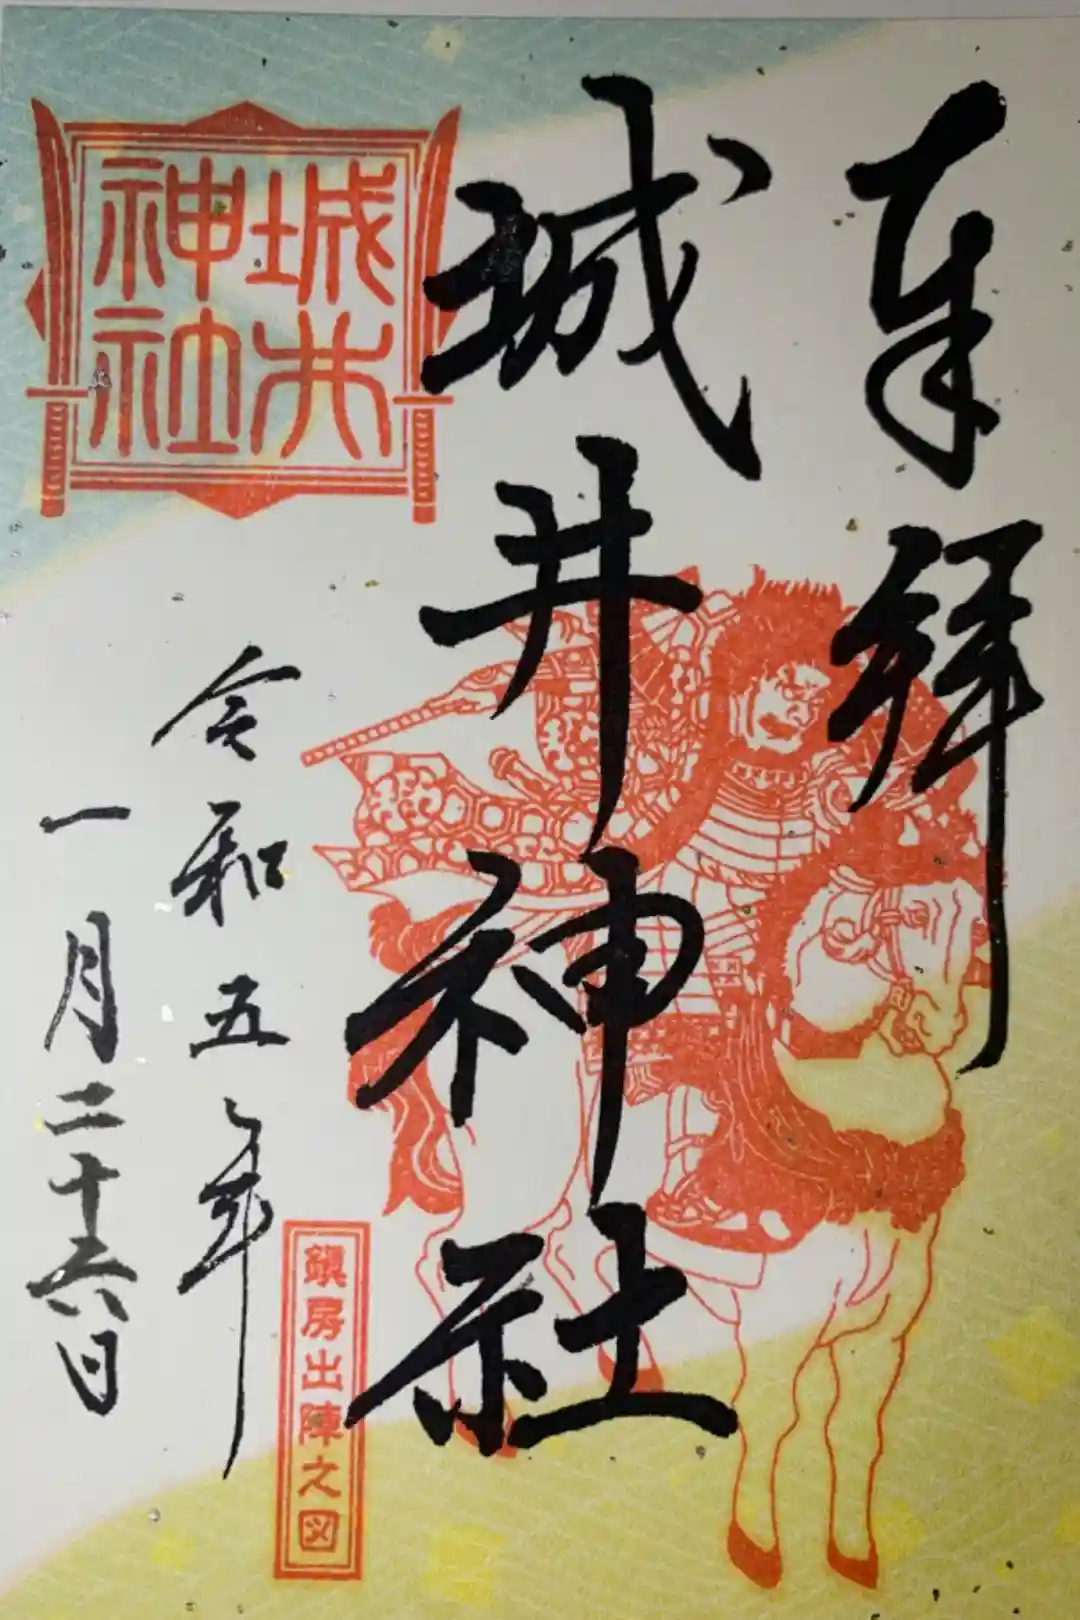 奉拝
城井神社
城井
神社
令和五年
一月二十六日
鎮房出陣之図